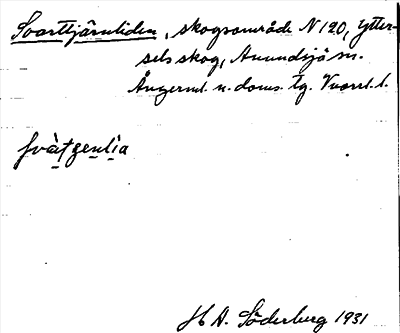 Svarttjärnliden, skogsområde N 120, Ytter-
sels skog, Anundsjö sn.
Ångerml. n. doms. tg. Vnorrl. l.
H A. Söderberg 1931